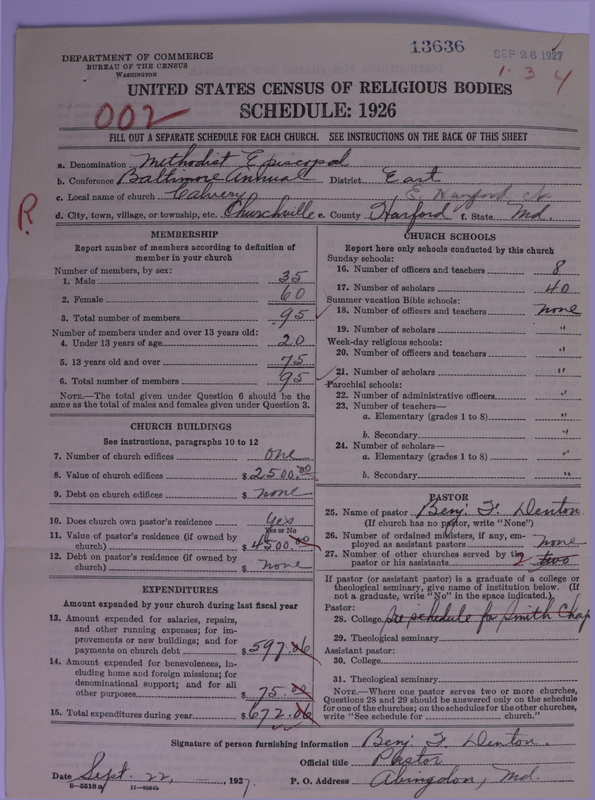 13636
SEP 26 1927
1-3 4
DEPARTMENT OF COMMERCE
BUREAU OF THE CENSUS
WASHINGTON
UNITED STATES CENSUS OF RELIGIOUS BODIES
SCHEDULE: 1926
002
FILL OUT A SEPARATE SCHEDULE FOR EACH CHURCH. SEE INSTRUCTIONS ON THE BACK OF THIS SHEET
a. Denomination Methodist Episcopal
b. Conference Baltimore Annual District East
c. Local name of church Calvery E. Harford Co
d. City, town, village, or township, etc. Churchville e. County Harford f. State Md.
R
MEMBERSHIP
Report number of members according to definition of
member in your church
Number of members, by sex:
1. Male 35
2. Female 60
3. Total number of members 95
Number of members under and over 13 years old:
4. Under 13 years of age 20
5. 13 years old and over 75
6. Total number of members 95
NOTE.—The total given under Question 6 should be the
same as the total of males and females given under Question 3.
CHURCH BUILDINGS
See instructions, paragraphs 10 to 12
7. Number of church edifices one
8. Value of church edifices $2500.00
9. Debt on church edifices $ none
10. Does church own pastor's residence yes
Yes or No
11. Value of pastor's residence (if owned by
church) $4500.00
12. Debt on pastor's residence (if owned by
church) $ none
EXPENDITURES
Amount expended by your church during last fiscal year
13. Amount expended for salaries, repairs,
and other running expenses; for im-
provements or new buildings; and for
payments on church debt $597.06
14. Amount expended for benevolences, in-
cluding home and foreign missions; for
denominational support; and for all
other purposes $75.00
15. Total expenditures during year $672.06
CHURCH SCHOOLS
Report here only schools conducted by this church
Sunday schools:
16. Number of officers and teachers 8
17. Number of scholars 40
Summer vacation Bible schools:
18. Number of officers and teachers none
19. Number of scholars "
Week-day religious schools:
20. Number of officers and teachers "
21. Number of scholars "
Parochial schools:
22. Number of administrative officers "
23. Number of teachers—
a. Elementary (grades 1 to 8) "
b. Secondary "
24. Number of scholars—
a. Elementary (grades 1 to 8) "
b. Secondary "
PASTOR
25. Name of pastor Benj. F. Denton
(If church has no pastor, write "None")
26. Number of ordained ministers, if any, em-
ployed as assistant pastors none
27. Number of other churches served by the
pastor or his assistants 2 two
If pastor (or assistant pastor) is a graduate of a college or
theological seminary, give name of institution below. (If
not a graduate, write "No" in the space indicated.)
Pastor:
28. College See schedule for Smith Chap
29. Theological seminary
Assistant pastor:
30. College
31. Theological seminary
NOTE.—Where one pastor serves two or more churches,
Questions 28 and 29 should be answered only on the schedule
for one of the churches; on the schedules for the other churches,
write "See schedule for church."
Signature of person furnishing information Benj. F. Denton.
Official title Pastor
Date Sept. 22, 1927. P. O. Address Abingdon, Md.